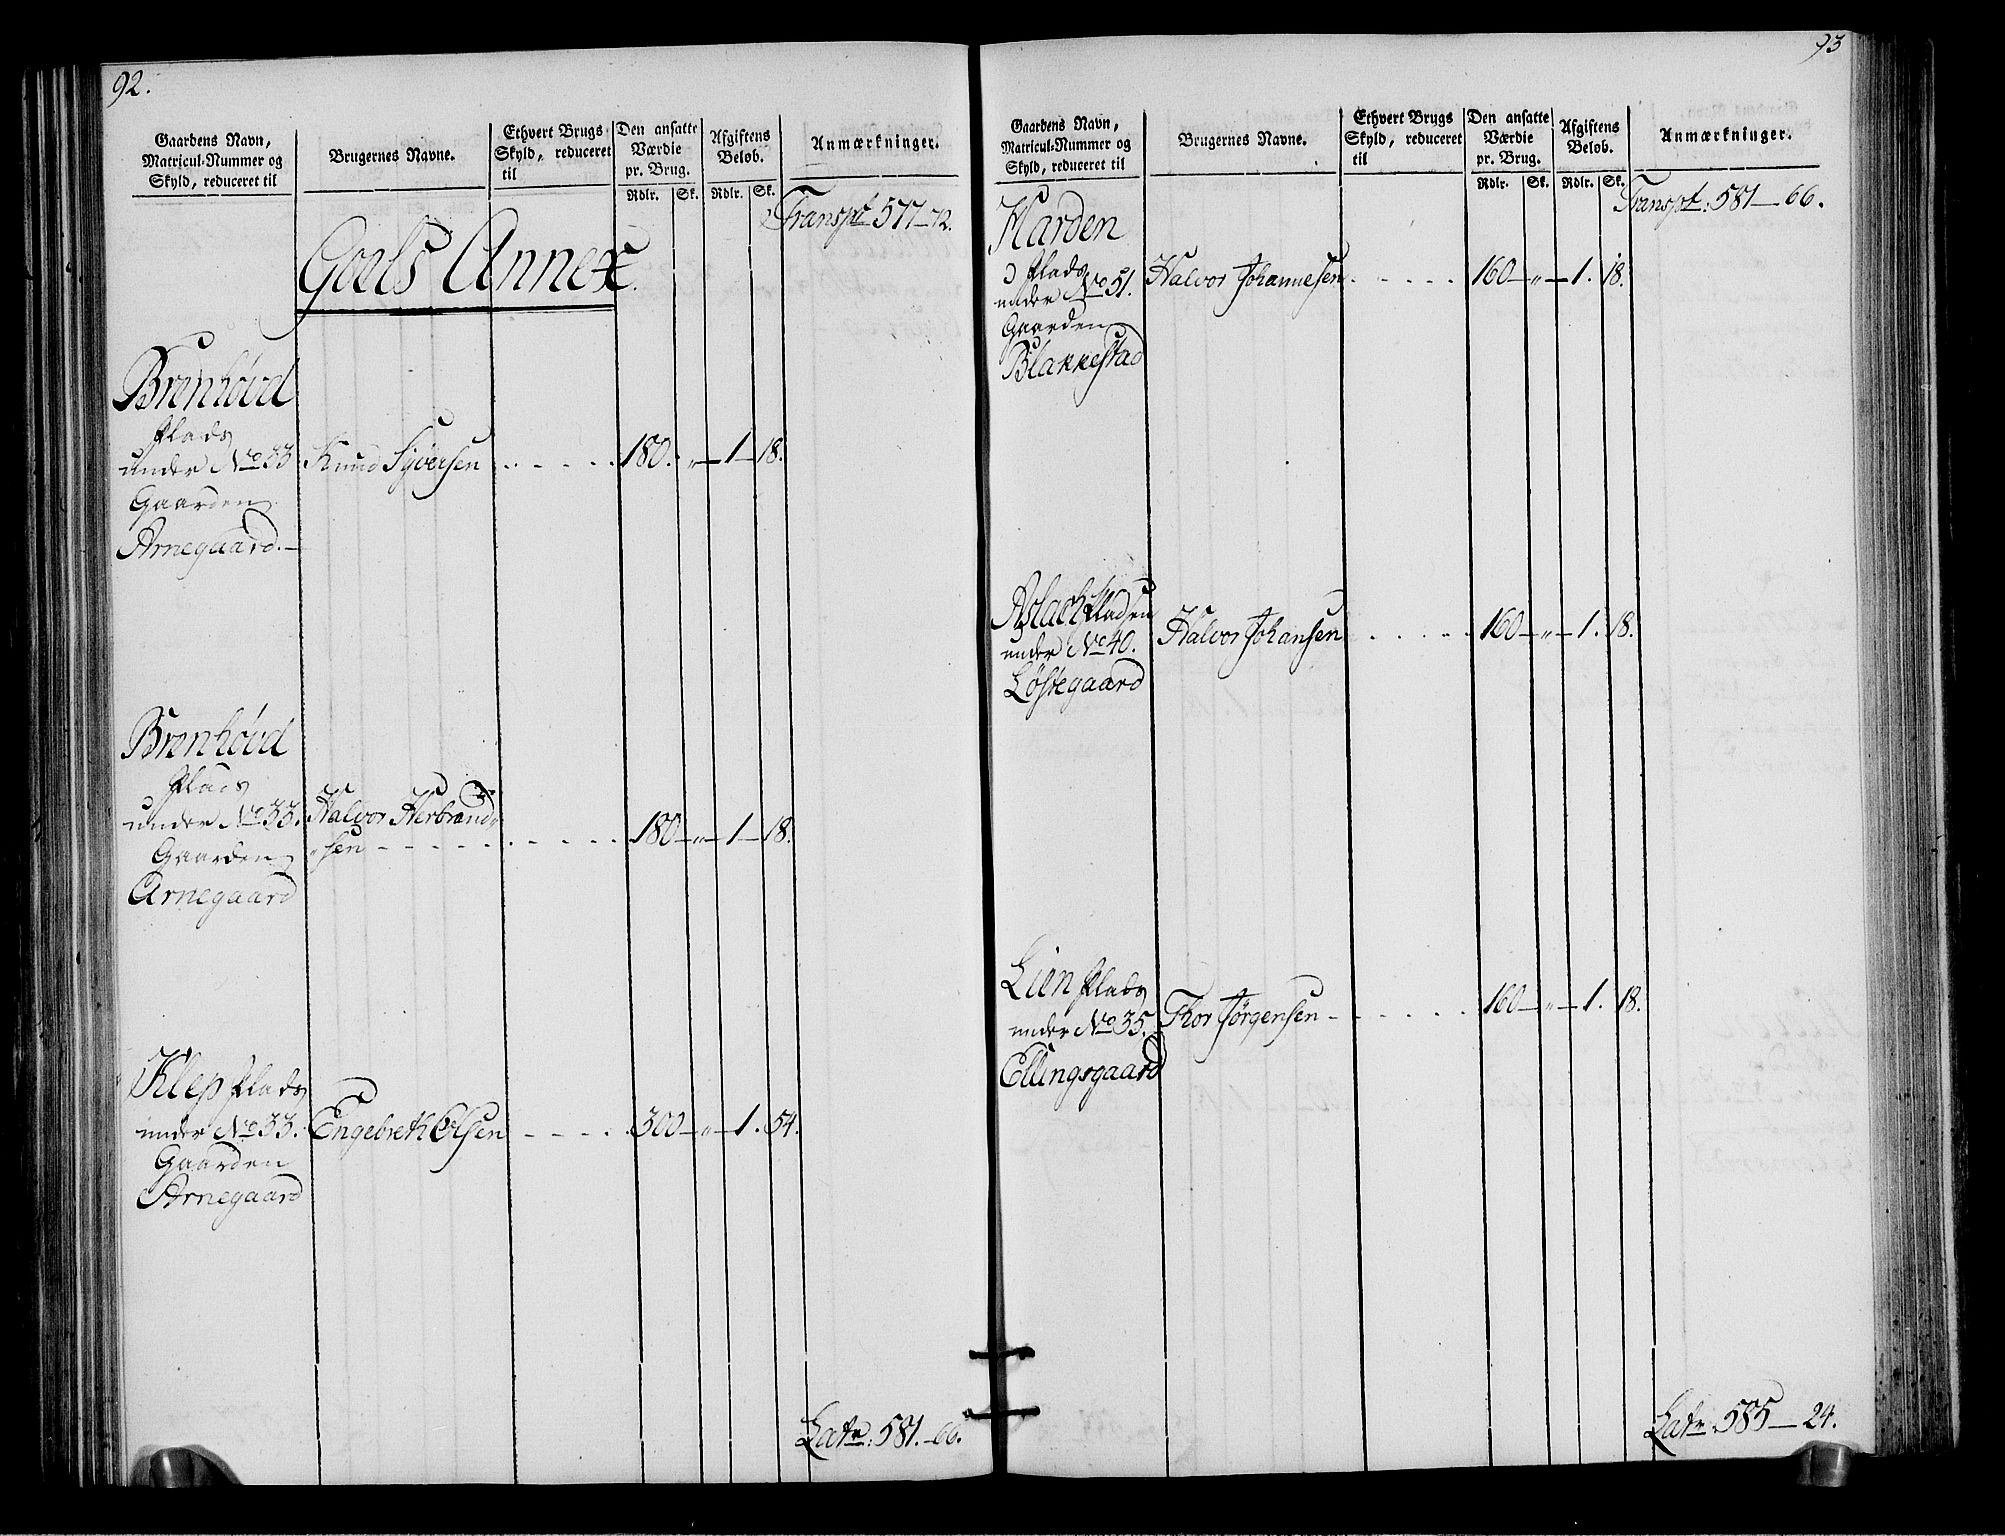 92.
Gaardens Navn,
Matricul-Nummer og
Skyld, reduceret til
Brugernes Navne.
Ethvert Brugs
Skyld, reduceret
til
Den ansatte
Værdie
pr. Brug.
Rdlr. Sk.
Afgiftens
Beløb.
Rdlr. Sk.
Anmærkninger.
Transpt 577-72.
Goels Annex
Brenhövd
Plads
under No 33 Knud Syversen . . - - . . 180. „ - 1 - 18.
Gaarden
Arnegaard. -
Brenhövd
Plads
under No 33. Halvor Herbrand„
Gaarden „sen - - - - - - - - - 180 - „ - 1 - 18.
Arnegaard
Klep Plads
under No 33. Engebreth Olsen - - - . 300 - „ - 1. 54.
Gaarden
Arnegaard
Latr: 581. - 66.
93
Gaardens Navn,
Matricul-Nummer og
Skyld, reduceret til
Brugernes Navne.
Ethvert Brugs
Skyld, reduceret
til
Den ansatte
Værdie
pr. Brug.
Rdlr. Sk.
Afgiftens
Beløb.
Rdlr. Sk.
Anmærkninger.
Transpt. 581 - 66.
Harden
Plads
under No 51. Halvor Johannesen . . - - - 160 - „ - 1. 18.
Gaarden
Blakkestad
Aslach Pladsen
under No 40. Halvor Johansen . . - - . 160 - „ - 1. 18.
Löstegaard
Lien Plads
under No 35. Thor Jörgensen - - - - - . 160 - „ - 1. 18.
Ellingsgaard
Latr. 585 - 24.